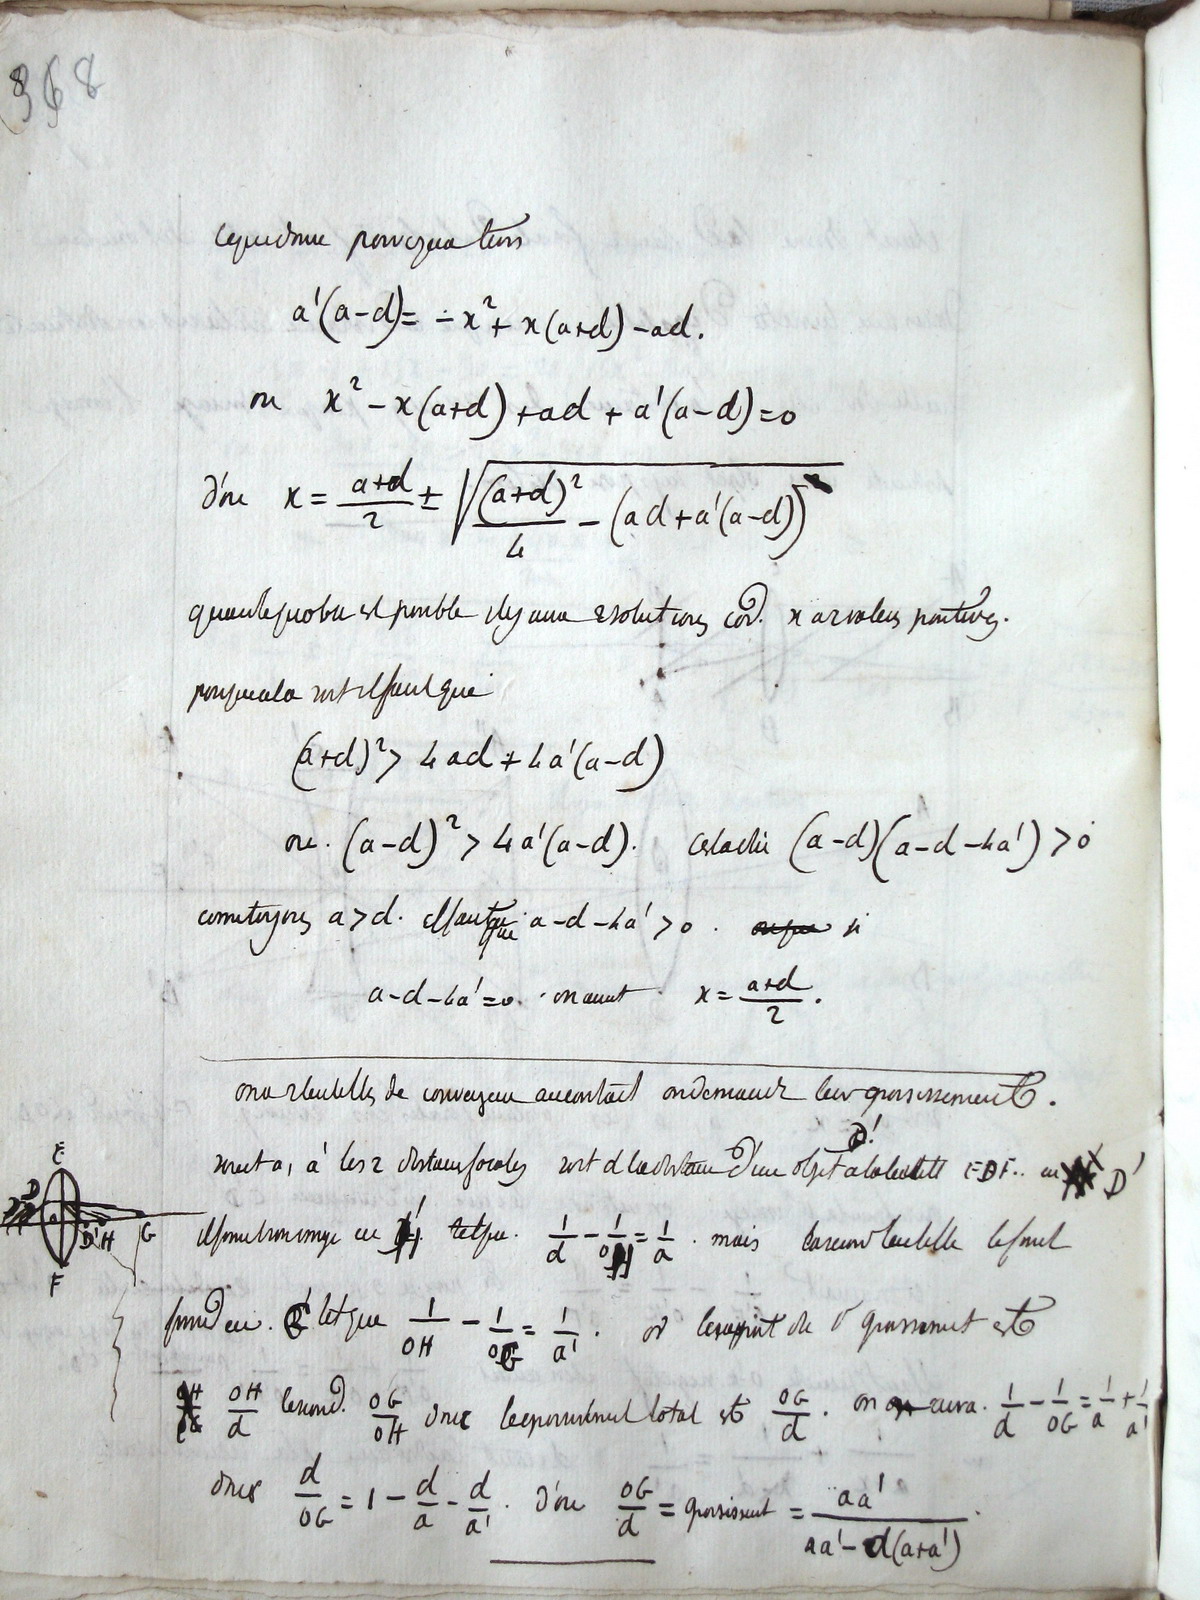 368
ce qui donne pour equations
a'(a-d) = -x² + x(a+d) - ad.
ou x² - x(a+d) + ad + a'(a-d) = 0
d'ou x = (a+d)/2 ± √((a+d)²/4 - (ad + a'(a-d)))
quand le probl. est possible il y aura 2 solutions car x a 2 valeurs positives.
pour que cela soit il faut que
(a+d)² > 4ad + 4a'(a-d)
ou. (a-d)² > 4a'(a-d). c'est a dire (a-d)(a-d-4a') > 0
comme toujours a > d. il faut que a-d-4a' > 0. si
a-d-4a' = 0. on aurait x = (a+d)/2.
on a 2 lentilles de convergence au contact on demande leur grossissement.
E
D
D'
H
G
F
soient a, a' les 2 distances focales soit d la distance d'un objet a la lentille EDF.. en D'
il fournit son image en H' tel que. 1/d - 1/OH = 1/a. mais la seconde lentille le fait
en G tel que 1/OH - 1/OG = 1/a'. or le grossissement est
OH/d le second. OG/OH donc le grossissement total est OG/d. on aura. 1/d - 1/OG = 1/a + 1/a'
donc d/OG = 1 - d/a - d/a'. d'ou OG/d = grossissent = aa'/(aa' - d(a+a')).